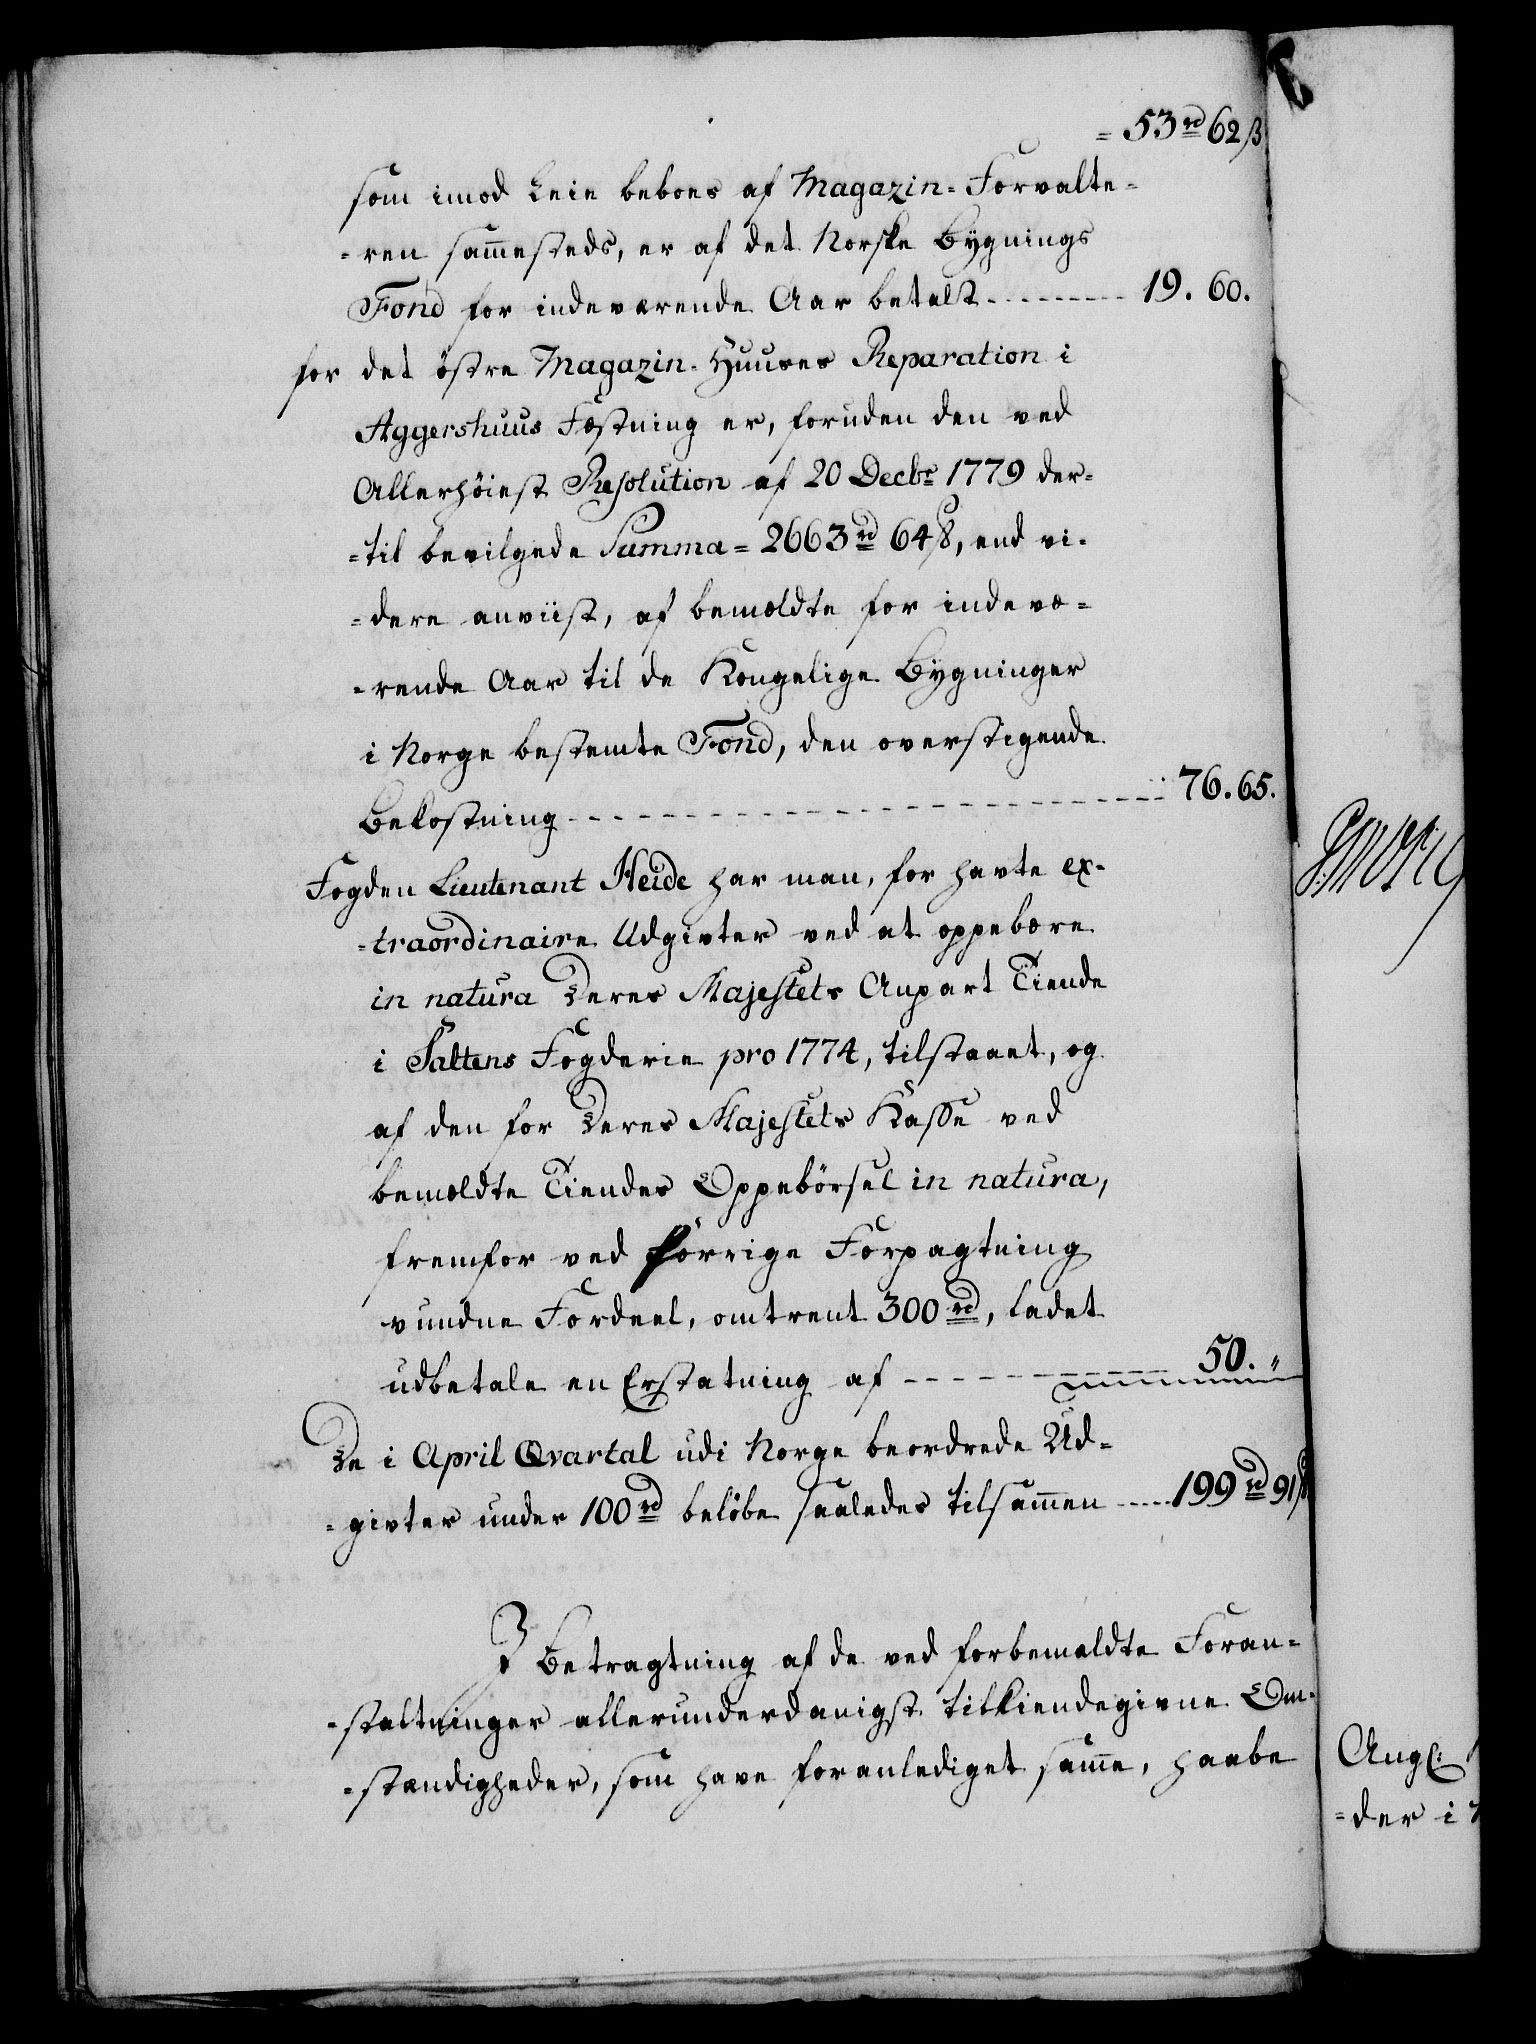 = 53 rd 62 ß
som imod Leie beboes af Magazin-Forvalte-
-ren sam̄esteds, er af det Norske Bygnings
Fond for indeværende Aar betalt --------- 19. 60.
for det östre Magazin-Huuses Reparation i
Aggershuus Fæstning er, foruden den ved
Allerhöiest Resolution af 20 Decbr 1779 der-
-til bevilgede Summa = 2663 rd 64 ß, end vi-
-dere anviist, af bemældte for indevæ-
-rende Aar til de Kongelige Bygninger
i Norge bestemte Fond, den overstigende
Bekostning ------------------------ 76. 65.
Fogden Lieutenant Heide har man, for havte ex-
-traordinaire Udgivter ved at oppebære
in natura Deres Majestets Anpart Tiende
i Saltens Fogderie pro 1774, tilstaaet, og
af den for Deres Majestets Kasse ved
bemældte Tiendes Oppebörsel in natura,
fremfor ved forrige Forpagtning
vundne Fordeel, omtrent 300 rd, ladet
udbetale en Erstatning af ------------ 50. "
De i April Qvartal udi Norge beordrede Ud-
-givter under 100 rd belöbe saaledes tilsam̄en ----- 199 rd 91 ß
I Betragtning af de ved forbemældte Foran-
-staltninger allerunderdanigst tilkiendegivne Om-
-stændigheder, som have foranlediget sam̄e, haabe
Ang:
-der i